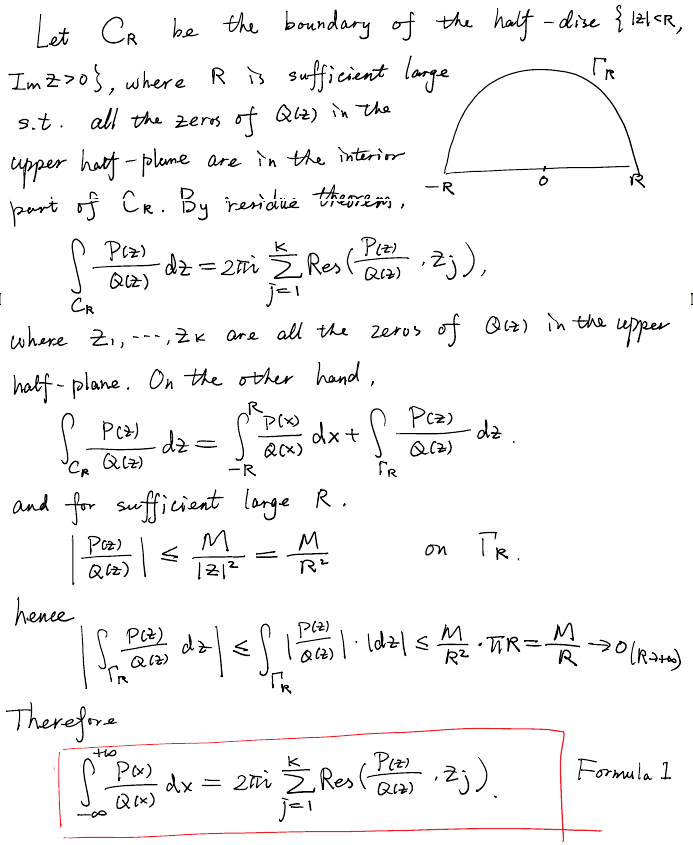 Let C_R be the boundary of the half-disc { |z|<R,
Im z>0}, where R is sufficient large
s.t. all the zeros of Q(z) in the
upper half-plane are in the interior
part of C_R. By residue theorem,
Γ_R
-R 0 R
∫_{C_R} P(z)/Q(z) dz = 2πi Σ_{j=1}^{k} Res( P(z)/Q(z) , z_j ),
where z_1, ---, z_k are all the zeros of Q(z) in the upper
half-plane. On the other hand,
∫_{C_R} P(z)/Q(z) dz = ∫_{-R}^{R} P(x)/Q(x) dx + ∫_{Γ_R} P(z)/Q(z) dz .
and for sufficient large R.
| P(z)/Q(z) | ≤ M/|z|^2 = M/R^2 on Γ_R.
hence
| ∫_{Γ_R} P(z)/Q(z) dz | ≤ ∫_{Γ_R} | P(z)/Q(z) | · |dz| ≤ M/R^2 · πR = M/R → 0 (R→+∞)
Therefore
∫_{-∞}^{+∞} P(x)/Q(x) dx = 2πi Σ_{j=1}^{k} Res( P(z)/Q(z) , z_j ). Formula 1